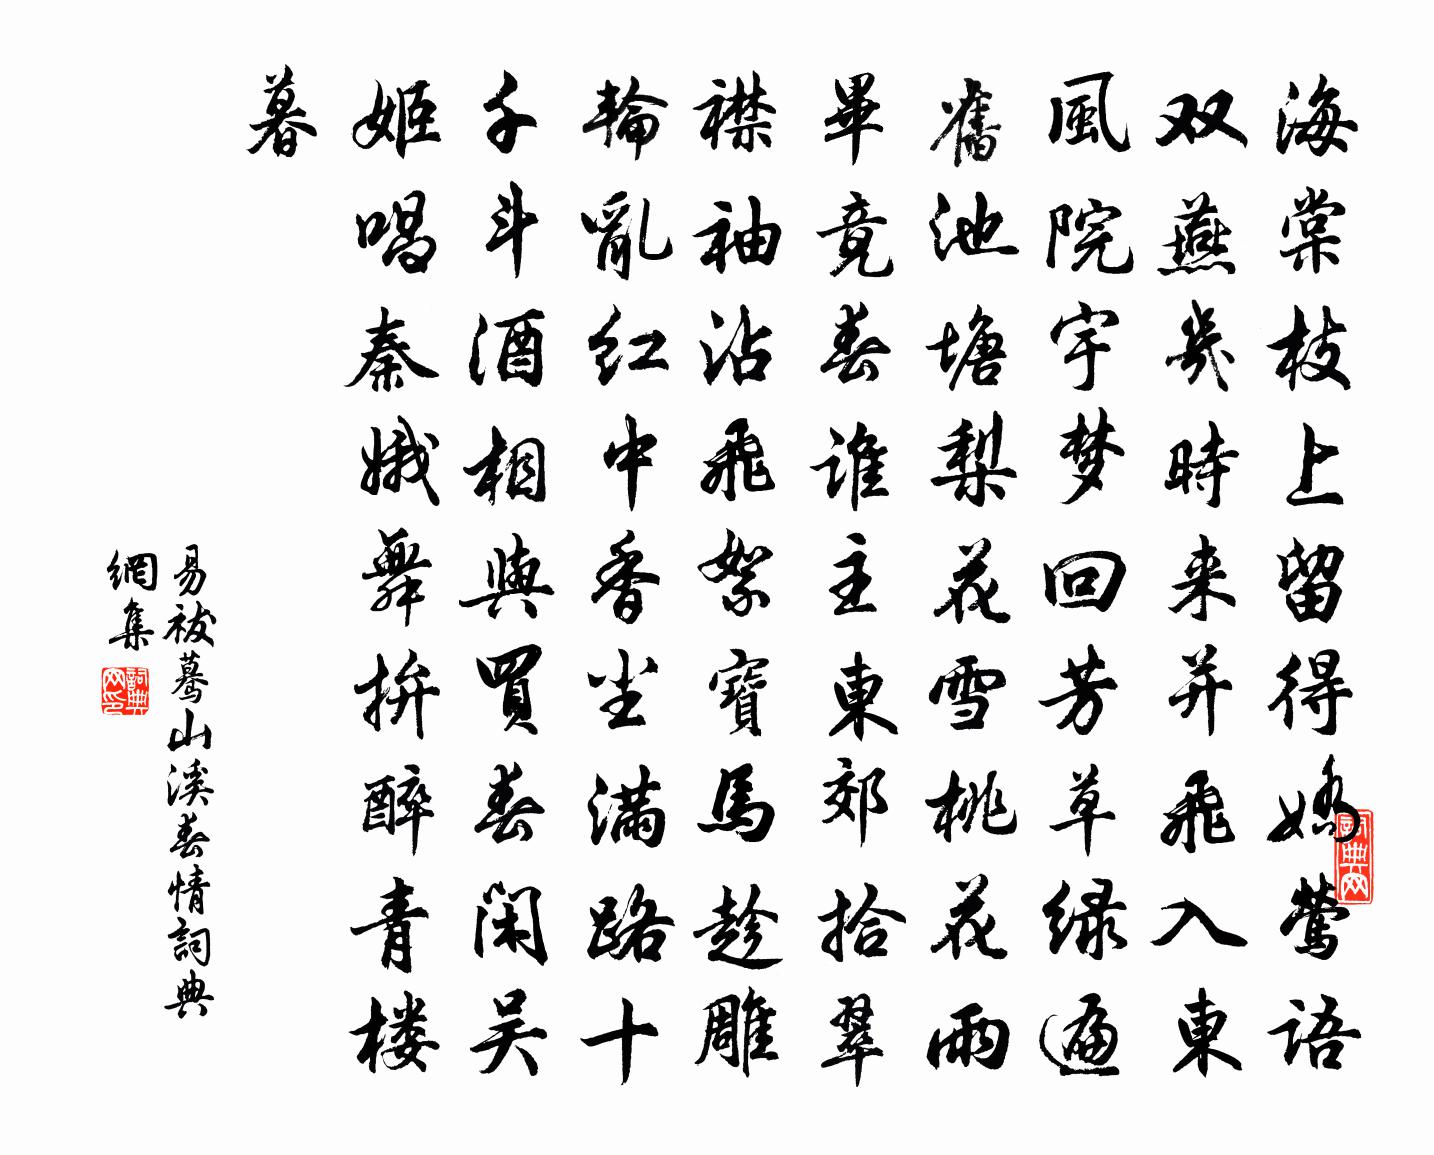 海棠枝上留得嬌鶯語
双燕幾時来并飛入東
風院宇梦回芳草緑遍
舊池塘梨花雪桃花雨
畢竟春誰主東郊拾翠
襟袖沾飛絮寶馬趁雕
輪亂红中香尘满路十
千斗酒相與買春閑吴
姬唱秦娥舞拚醉青楼
暮
易祓蓦山溪春情詞典
網集
詞典網
詞典網印